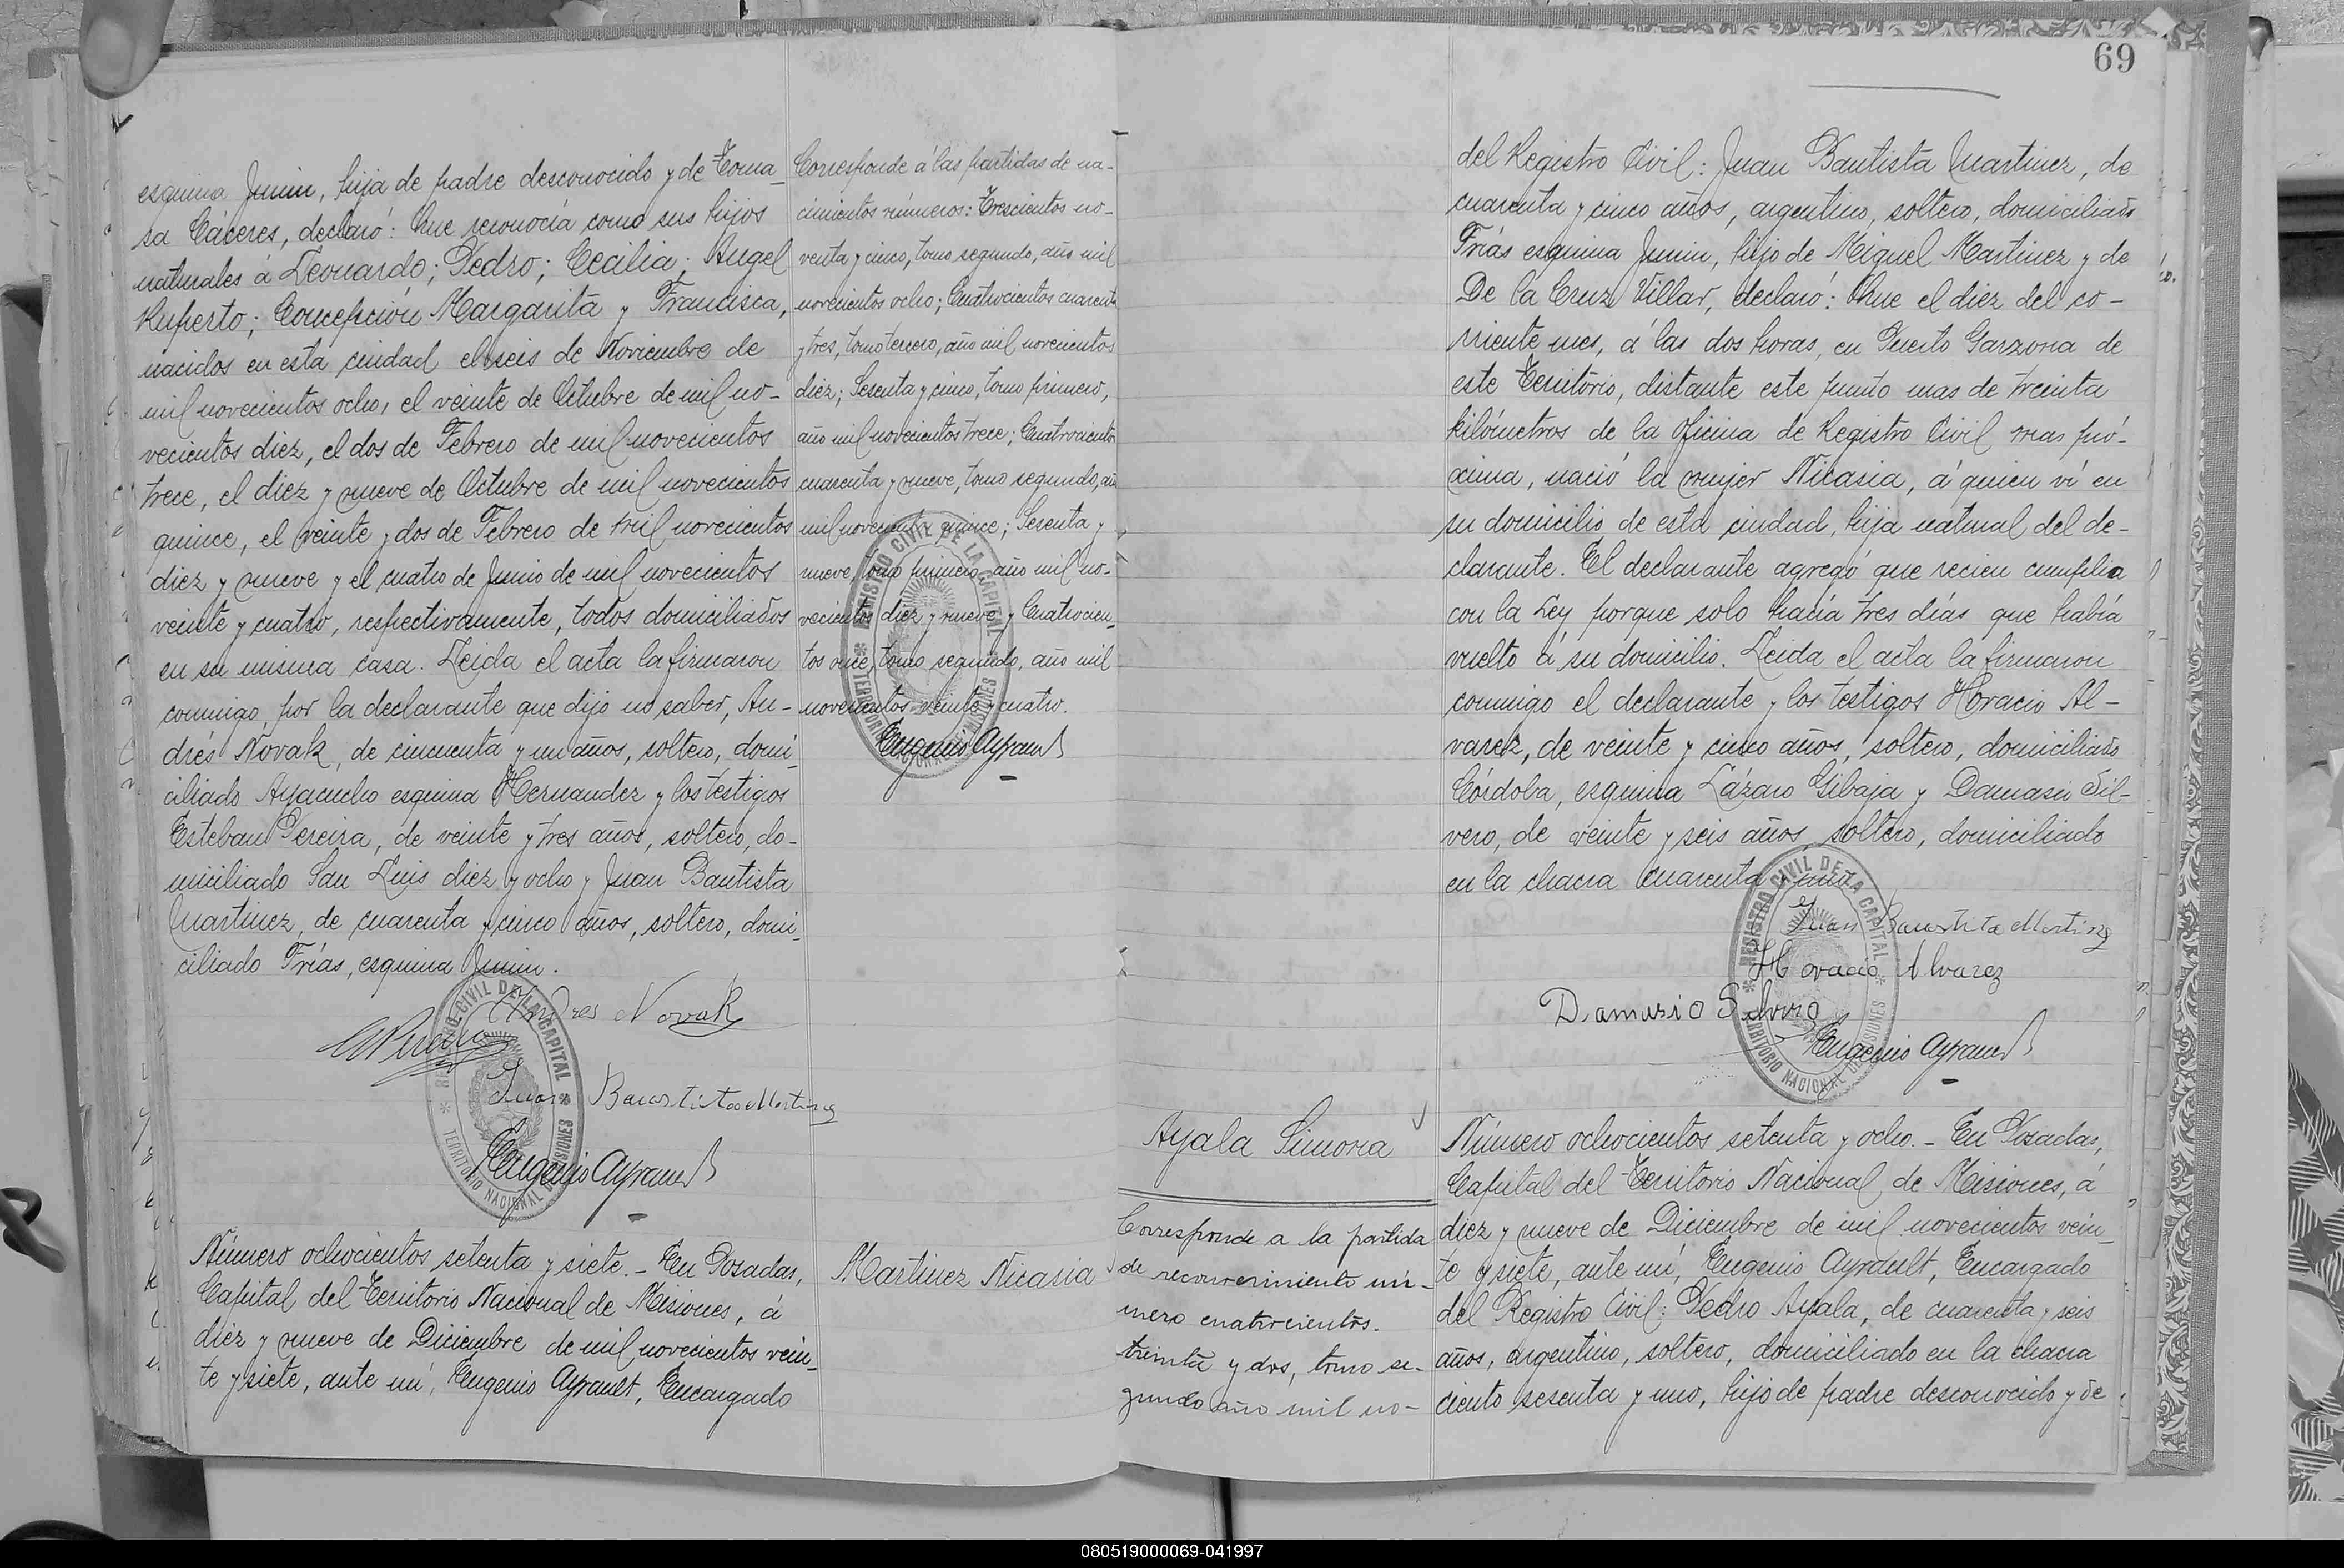 esquina Junin, hija de padre desconocido y de Toma-
sa Cáceres, declaró: Que reconocía como sus hijos
naturales á Leonardo; Pedro; Cecilia; Angel
Ruperto; Concepción Margarita y Francisca,
nacidos en esta ciudad el seis de Noviembre de
mil novecientos ocho, el veinte de Octubre de mil no-
vecientos diez, el dos de Febrero de mil novecientos
trece, el diez y nueve de Octubre de mil novecientos
quince, el veinte y dos de Febrero de mil novecientos
diez y nueve y el cuatro de Junio de mil novecientos
veinte y cuatro, respectivamente, todos domiciliados
en su misma casa. Leida el acta la firmaron
conmigo, por la declarante que dijo no saber, An-
drés Novak, de cincuenta y un años, soltero, domi-
ciliado Ayacucho esquina Hernandez y los testigos
Esteban Pereira, de veinte y tres años, soltero, do-
miciliado San Luis diez y ocho y Juan Bautista
Martinez, de cuarenta y cinco años, soltero, domi-
ciliado Frías, esquina Junin.
Andres Novak
Juan Bautista Martinez
Eugenio Ayrault
REGISTRO CIVIL DE LA CAPITAL
TERRITORIO NACIONAL DE MISIONES
Corresponde á las partidas de na-
cimientos números: Trescientos no-
venta y cinco, tomo segundo, año mil
novecientos ocho; Cuatrocientos cuarenta
y tres, tomo tercero, año mil novecientos
diez; Sesenta y cinco, tomo primero,
año mil novecientos trece; Cuatrocientos
cuarenta y nueve, tomo segundo, año
mil novecientos quince; Sesenta y
nueve, tomo primero, año mil no-
vecientos diez y nueve y Cuatrocien-
tos once, tomo segundo, año mil
novecientos veinte y cuatro.
Eugenio Ayrault
REGISTRO CIVIL DE LA CAPITAL
TERRITORIO NACIONAL DE MISIONES
Número ochocientos setenta y siete. - En Posadas,
Capital del Territorio Nacional de Misiones, á
diez y nueve de Diciembre de mil novecientos vein-
te y siete, ante mí, Eugenio Ayrault, Encargado
Martinez Nicasia
69
del Registro Civil: Juan Bautista Martinez, de
cuarenta y cinco años, argentino, soltero, domiciliado
Frías esquina Junin, hijo de Miguel Martinez y de
De la Cruz Villar, declaró: Que el diez del co-
rriente mes, á las dos horas, en Puerto Garzona de
este Territorio, distante este punto mas de treinta
kilómetros de la Oficina de Registro Civil mas pró-
xima, nació la mujer Nicasia, á quien ví en
su domicilio de esta ciudad, hija natural del de-
clarante. El declarante agregó que recien cumplia
con la Ley porque solo hacía tres días que había
vuelto á su domicilio. Leida el acta la firmaron
conmigo el declarante y los testigos Horacio Al-
varez, de veinte y cinco años, soltero, domiciliado
Córdoba, esquina Lázaro Gibaja y Damasio Sil-
vero, de veinte y seis años, soltero, domiciliado
en la chacra cuarenta y una.
Juan Bautista Martinez
Horacio Alvarez
Damasio Silvero
Eugenio Ayrault
REGISTRO CIVIL DE LA CAPITAL
TERRITORIO NACIONAL DE MISIONES
Ayala Simona
Corresponde a la partida
de reconocimiento nú-
mero cuatrocientos
treinta y dos, tomo se-
gundo año mil no-
Número ochocientos setenta y ocho. - En Posadas,
Capital del Territorio Nacional de Misiones, á
diez y nueve de Diciembre de mil novecientos vein-
te y siete, ante mí, Eugenio Ayrault, Encargado
del Registro Civil: Pedro Ayala, de cuarenta y seis
años, argentino, soltero, domiciliado en la chacra
ciento sesenta y uno, hijo de padre desconocido y de
080519000069-041997